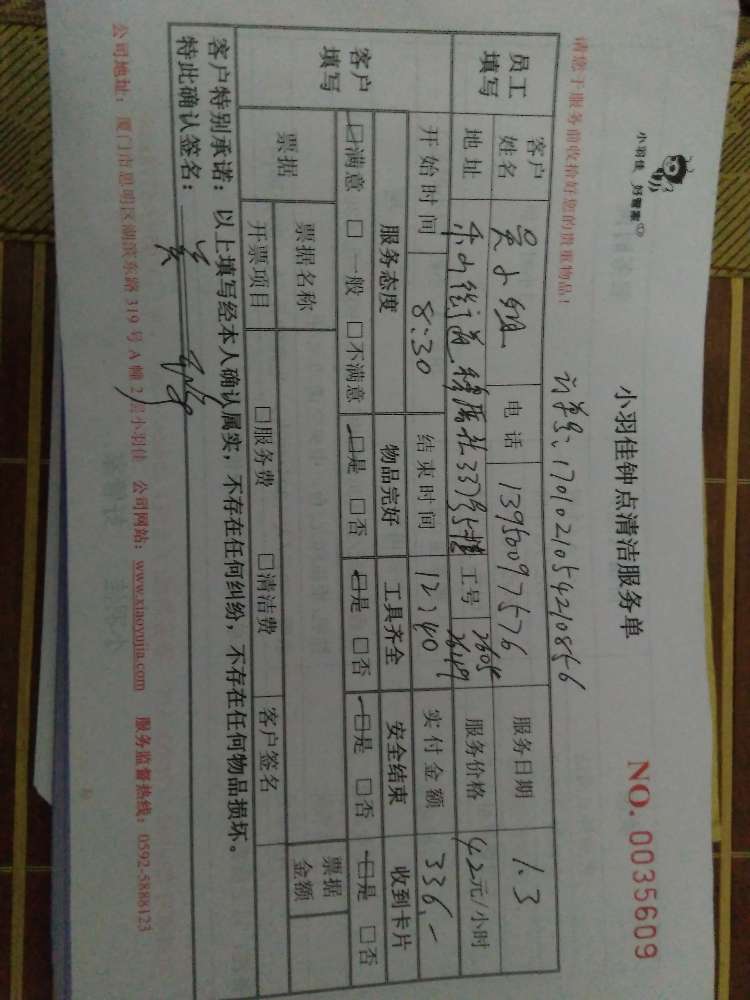 小羽佳 好管家
小羽佳钟点清洁服务单
NO. 0035609
请您于服务前收拾好您的贵重物品!
订单号:1701021054210856
员工填写 客户姓名 吴小姐 电话 13950097576 服务日期 1.3
地址 禾山街道 337号 工号 2605 2649 服务价格 42元/小时
开始时间 8:30 结束时间 12:40 实付金额 336.-
客户填写 服务态度 物品完好 工具齐全 安全结束 收到卡片
满意 一般 不满意 是 否 是 否 是 否 是 否
票据 票据名称 票据金额
开票项目 服务费 清洁费 客户签名
客户特别承诺:以上填写经本人确认属实,不存在任何纠纷,不存在任何物品损坏。
特此确认签名:吴
公司地址:厦门市思明区湖滨东路 319 号 A 幢 2 层小羽佳 公司网站:www.xiaoyujia.com 服务监督热线:0592-5888123